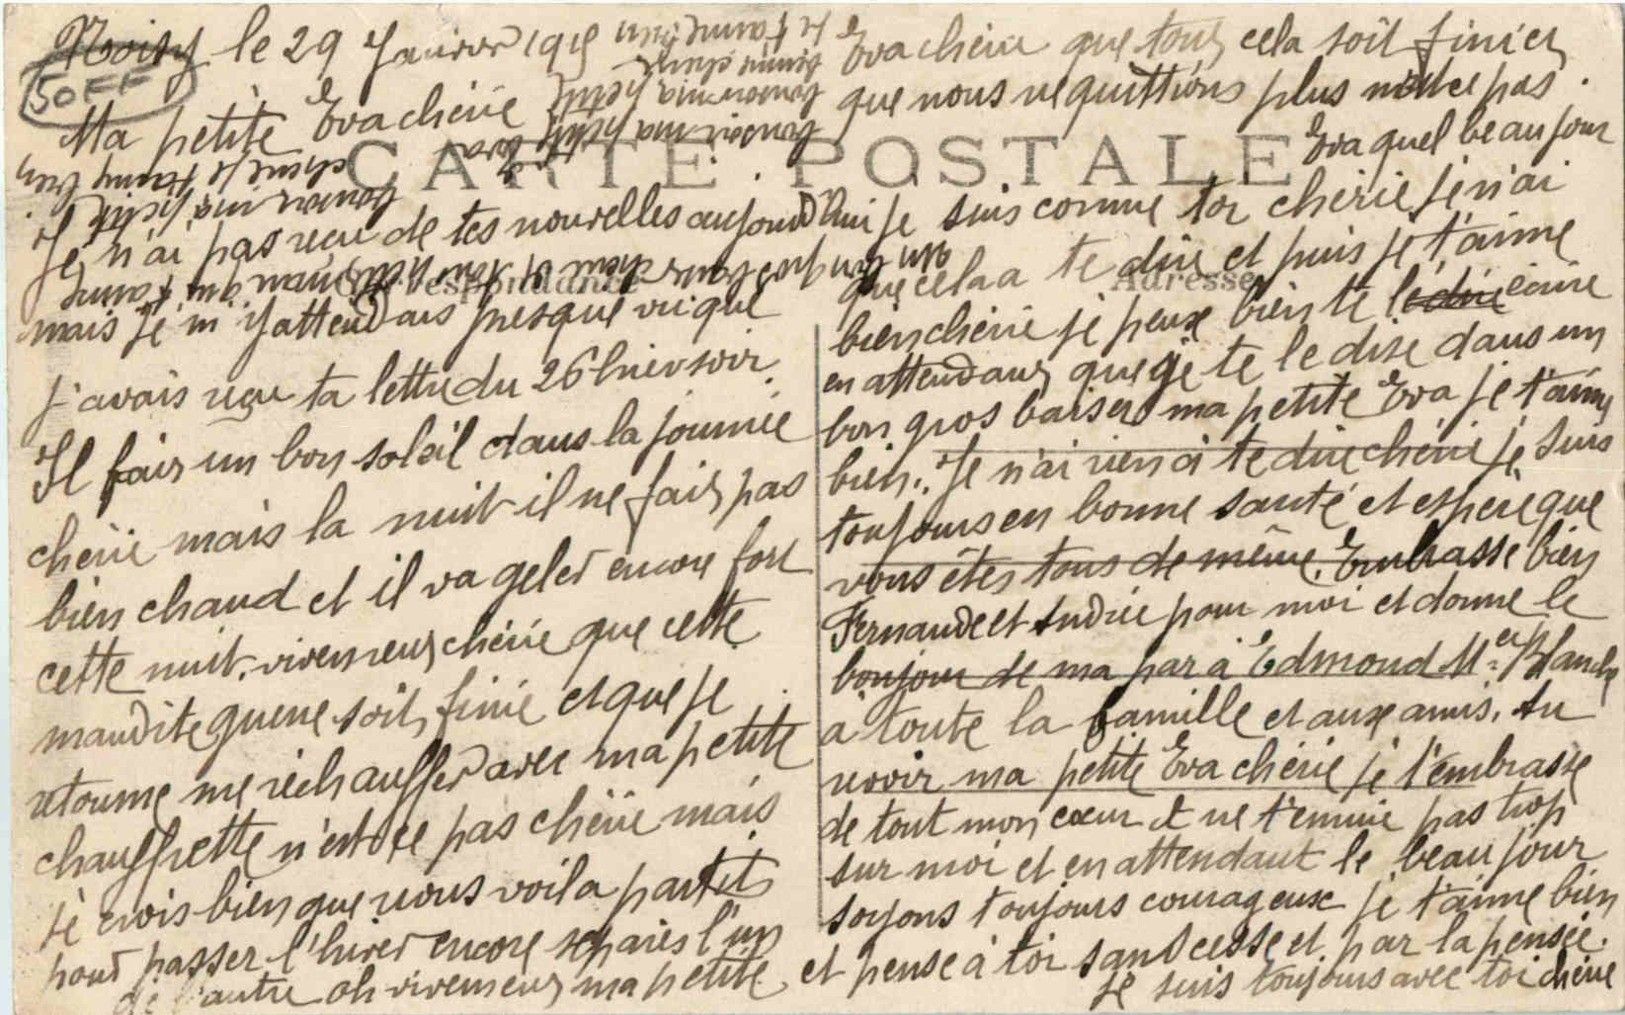 Noisy le 29 Janvier 1915
50FF
Ma petite Eva chérie
CARTE POSTALE
Correspondance
Adresse
Je n'ai pas reçu de tes nouvelles aujourd'hui
mais je m'y attendais presque vu que
j'avais reçu ta lettre du 26 hier soir.
Il fair un bon soleil dans la journée
chérie mais la nuit il ne fais pas
bien chaud et il va geler encore fort
cette nuit. vivement chérie que cette
maudite guerre soit finie et que je
retourne me réchauffer avec ma petite
chauffrette n'est ce pas chérie mais
je crois bien que nous voila partit
pour passer l'hiver encore séparés l'un
de l'autre oh vivement ma petite
Eva chérie que tout cela soit finie et
que nous ne quittions plus n'est ce pas.
Eva quel beau jour
je suis comme toi chérie je n'ai
que cela a te dire et puis je t'aime
bien chérie je peux bien te le dire écrire
en attendant que je te le dise dans un
bon gros baiser ma petite Eva je t'aime
bien. Je n'ai rien à te dire chérie je suis
toujours en bonne santé et espère que
vous êtes tous de même. Embrasse bien
Fernande et Andrée pour moi et donne le
bonjour de ma par à Edmond Mce Blanche
à toute la famille et aux amis. Au
revoir ma petite Eva chérie je t'embrasse
de tout mon cœur et ne t'ennuie pas trop
sur moi et en attendant le beau jour
soyons toujours courageux je t'aime bien
et pense à toi sans cesse et par la pensée.
je suis toujours avec toi chérie